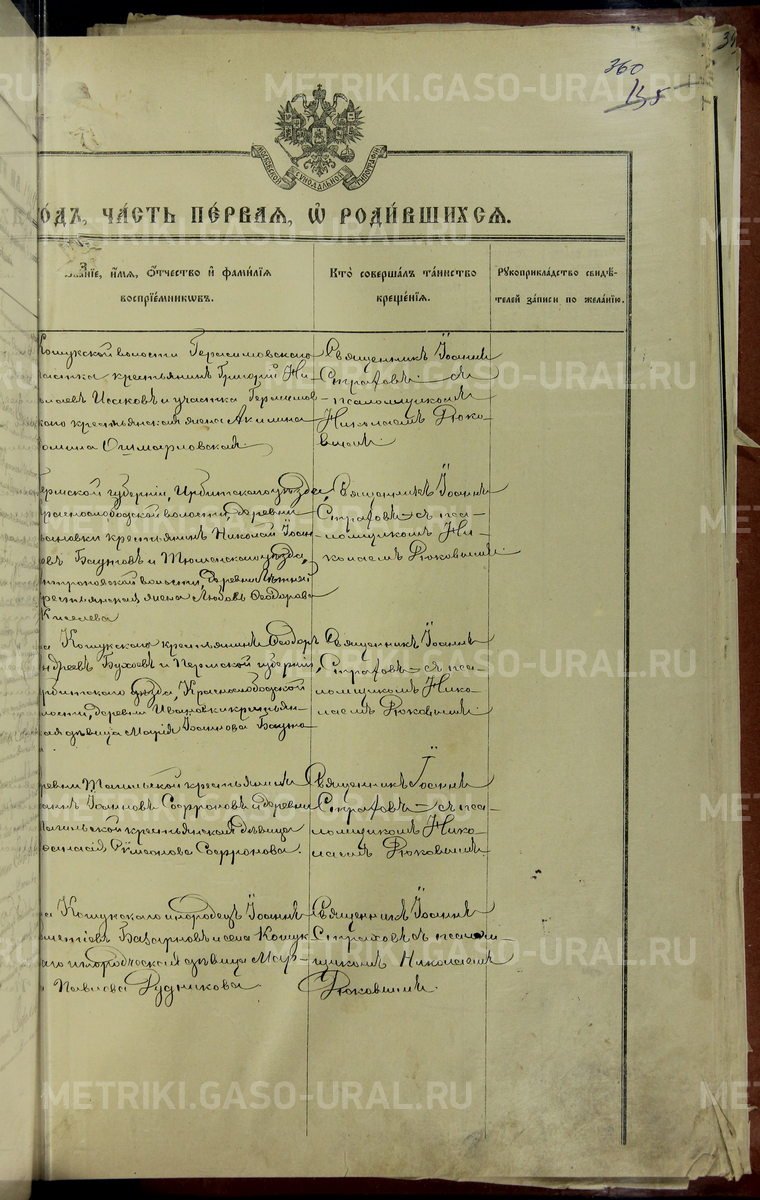 360
135
МОСКОВСКОЙ СУНОДАЛЬНОЙ ТИПОГРАФІИ
ОДЪ, ЧА́СТЬ ПЕ́РВАЯ, Ѡ҆ РОДИ́ВШИХСЯ.
Зва́ніе, и҆́мя, о҆́тчество и҆ фами́лїя
воспріе́мникѡвъ.
Кто̀ соверша́лъ та́инство
креще́нїя.
Рꙋкоприкла́дство свидѣ́-
телей за́писи по жела́нїю.
Кошукской волости Герасимовскаго
участка крестьянинъ Григорій Ни-
колаевъ Исаковъ и участка Герасимов-
скаго крестьянская жена Акилина
Ошмарловская.
Священникъ Іоаннъ
Страховъ съ
псаломщикомъ
Николаемъ Рюко-
вымъ.
Пермской губерніи, Ирбитскаго уѣзда,
Краснослободской волости, деревни
Ивановки крестьянинъ Николай Іоан-
новъ Баутовъ и Тюменскаго уѣзда,
волости, деревни
крестьянская жена Любовь Ѳеодорова
Киселева
Священникъ Іоаннъ
Страховъ съ пса-
ломщикомъ Ни-
колаемъ Рюковымъ.
Кошукскаго крестьянинъ Ѳеодоръ
Андреевъ Бухоевъ и Пермской губерніи,
Ирбитскаго уѣзда, Краснослободской
волости, деревни Ивановки крестьян-
ская дѣвица Марія Іоаннова Бауто-
Священникъ Іоаннъ
Страховъ съ пса-
ломщикомъ Нико-
лаемъ Рюковымъ.
деревни Тагильской крестьянинъ
Іоанновъ Софроновъ и деревни
Тагильской крестьянская дѣвица
Анастасія Симеонова Софронова.
Священникъ Іоаннъ
Страховъ съ пса-
ломщикомъ Нико-
лаемъ Рюковымъ.
Кошукскаго инородецъ Іоаннъ
и села Кошук-
скаго инородческая дѣвица Мар-
Павлова Рудникова.
Священникъ Іоаннъ
Страховъ съ псалом-
щикомъ Николаемъ
Рюковымъ.
METRIKI.GASO-URAL.RU